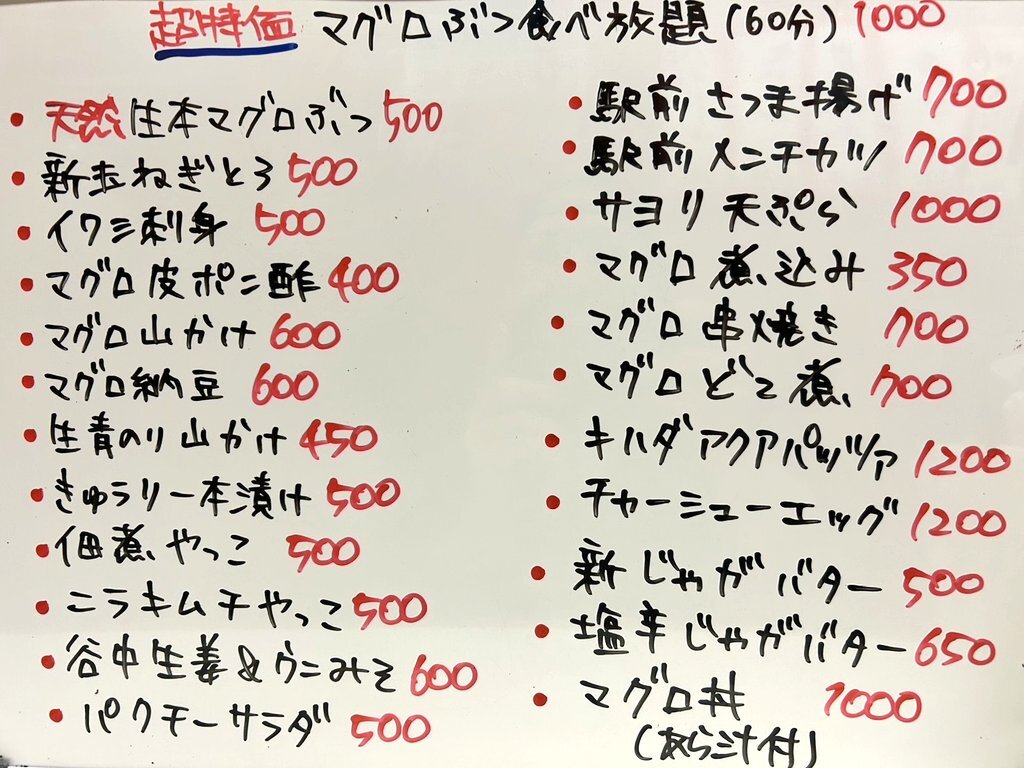 超特価 マグロぶつ食べ放題(60分) 1000
• 天然生本マグロぶつ 500
• 新玉ねぎとろ 500
• イワシ刺身 500
• マグロ皮ポン酢 400
• マグロ山かけ 600
• マグロ納豆 600
• 生青のり山かけ 450
• きゅうり一本漬け 500
• 佃煮やっこ 500
• ニラキムチやっこ 500
• 谷中生姜&ウニみそ 600
• パクチーサラダ 500
• 駅前さつま揚げ 700
• 駅前メンチカツ 700
• サヨリ天ぷら 1000
• マグロ煮込み 350
• マグロ串焼き 700
• マグロどて煮 700
• キハダアクアパッツァ 1200
• チャーシューエッグ 1200
• 新じゃがバター 500
• 塩辛じゃがバター 650
• マグロ丼 1000
(あら汁付)